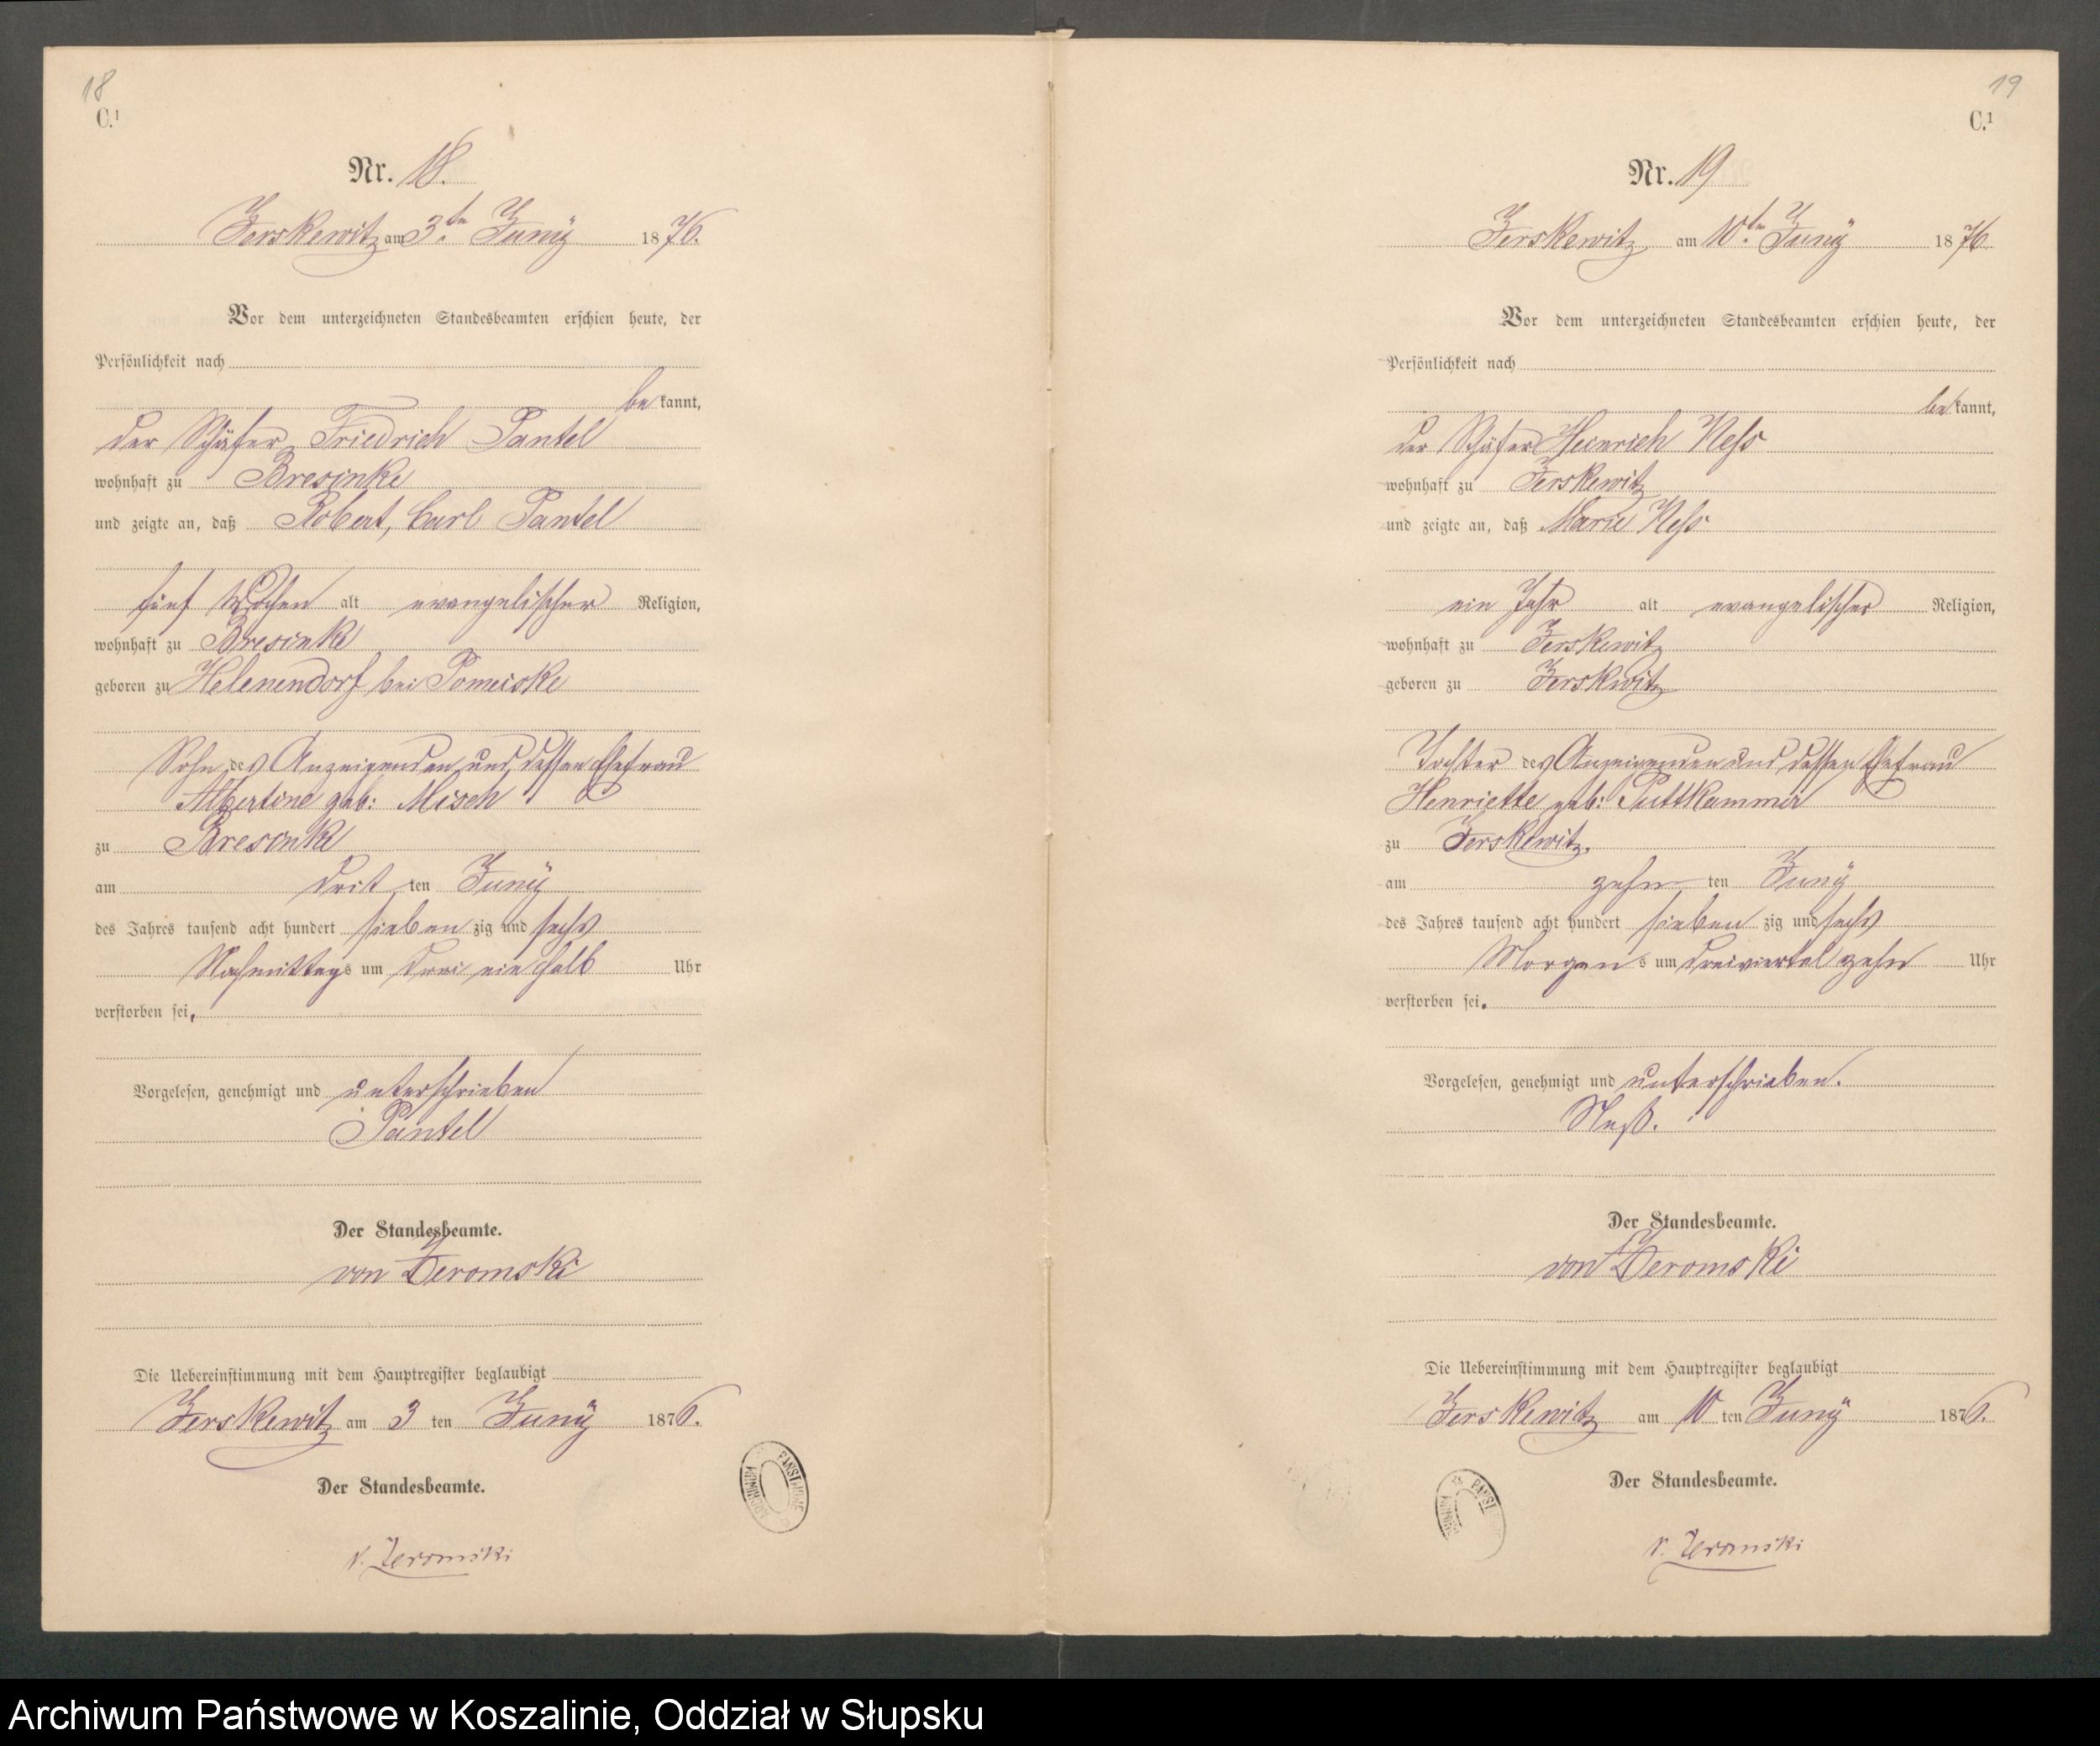 18
C.1
Nr. 18.
Jerskewitz am 3.ten Juny 1876.
Vor dem unterzeichneten Standesbeamten erschien heute, der
Persönlichkeit nach
bekannt,
der Schäfer Friedrich Pantel
wohnhaft zu Bresinke
und zeigte an, daß Robert, Carl Pantel
fünf Wochen alt evangelischer Religion,
wohnhaft zu Bresinke
geboren zu Helenendorf bei Pomeiske
Sohn des Anzeigenden und dessen Ehefrau
Albertine geb: Misch
zu Bresinke
am dritten Juny
des Jahres tausend acht hundert siebenzig und sechs
Nachmittags um drei ein halb Uhr
verstorben sei.
Vorgelesen, genehmigt und unterschrieben
Pantel
Der Standesbeamte.
von Zeromski
Die Uebereinstimmung mit dem Hauptregister beglaubigt
Jerskewitz am 3ten Juny 1876.
Der Standesbeamte.
v. Zeromski
19
C.1
Nr. 19
Jerskewitz am 10.ten Juny 1876
Vor dem unterzeichneten Standesbeamten erschien heute, der
Persönlichkeit nach
bekannt,
der Schäfer Heinrich Ness
wohnhaft zu Jerskewitz
und zeigte an, daß Marie Ness
ein Jahr alt evangelischer Religion,
wohnhaft zu Jerskewitz
geboren zu Jerskewitz
Tochter des Anzeigenden und dessen Ehefrau
Henriette geb: Puttkammer
zu Jerskewitz.
am zehnten Juny
des Jahres tausend acht hundert siebenzig und sechs
Morgens um dreiviertel zehn Uhr
verstorben sei.
Vorgelesen, genehmigt und unterschrieben.
Neß.
Der Standesbeamte.
von Zeromski
Die Uebereinstimmung mit dem Hauptregister beglaubigt
Jerskewitz am 10ten Juny 1876.
Der Standesbeamte.
v. Zeromski
Archiwum Państwowe w Koszalinie, Oddział w Słupsku